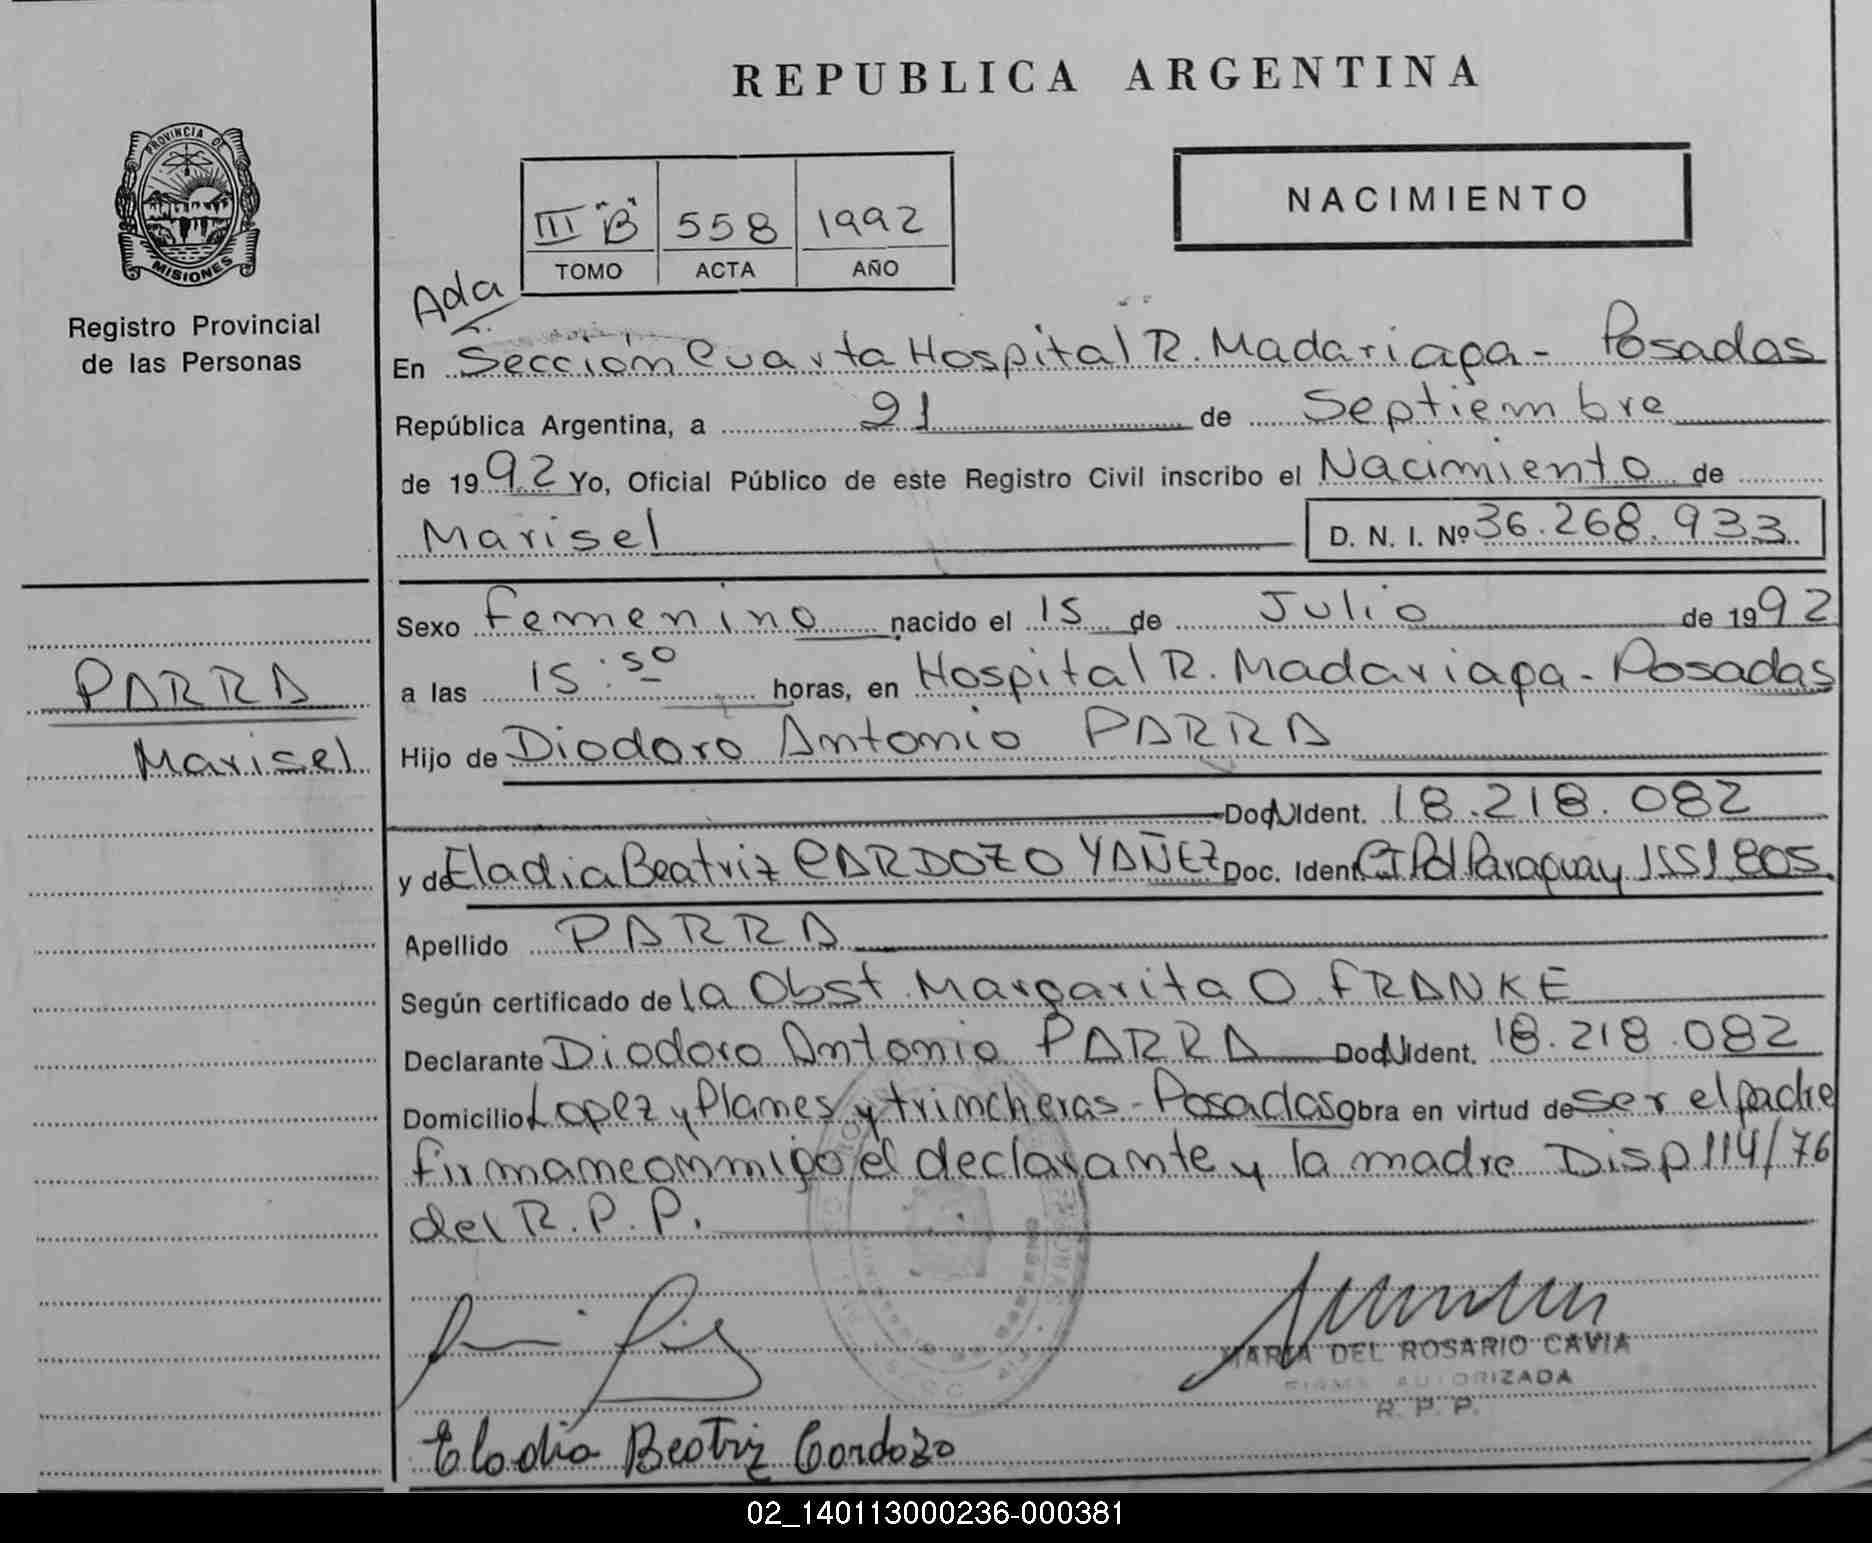 REPUBLICA ARGENTINA
PROVINCIA DE
MISIONES
Registro Provincial
de las Personas
NACIMIENTO
III "B" 558 1992
TOMO ACTA AÑO
Ada
En Sección Cuarta Hospital R. Madariaga - Posadas
República Argentina, a 21 de Septiembre
de 1992 Yo, Oficial Público de este Registro Civil inscribo el Nacimiento de
Marisel D. N. I. Nº 36.268.933
PARRA
Marisel
Sexo femenino nacido el 15 de Julio de 1992
a las 15:50 horas, en Hospital R. Madariaga - Posadas
Hijo de Diodoro Antonio PARRA
Doc. Ident. 18.218.082
y de Eladia Beatriz CARDOZO YAÑEZ Doc. Ident. CI Pol Paraguay 1551805
Apellido PARRA
Según certificado de la Obst. Margarita O FRANKE
Declarante Diodoro Antonio PARRA Doc. Ident. 18.218.082
Domicilio Lopez y Planes y trincheras - Posadas obra en virtud de ser el padre
firmaneonmigo el declarante y la madre Disp 114/76
del R.P.P.
MARIA DEL ROSARIO CAVIA
FIRMA AUTORIZADA
R. P. P.
Eladia Beatriz Cardozo
02_140113000236-000381